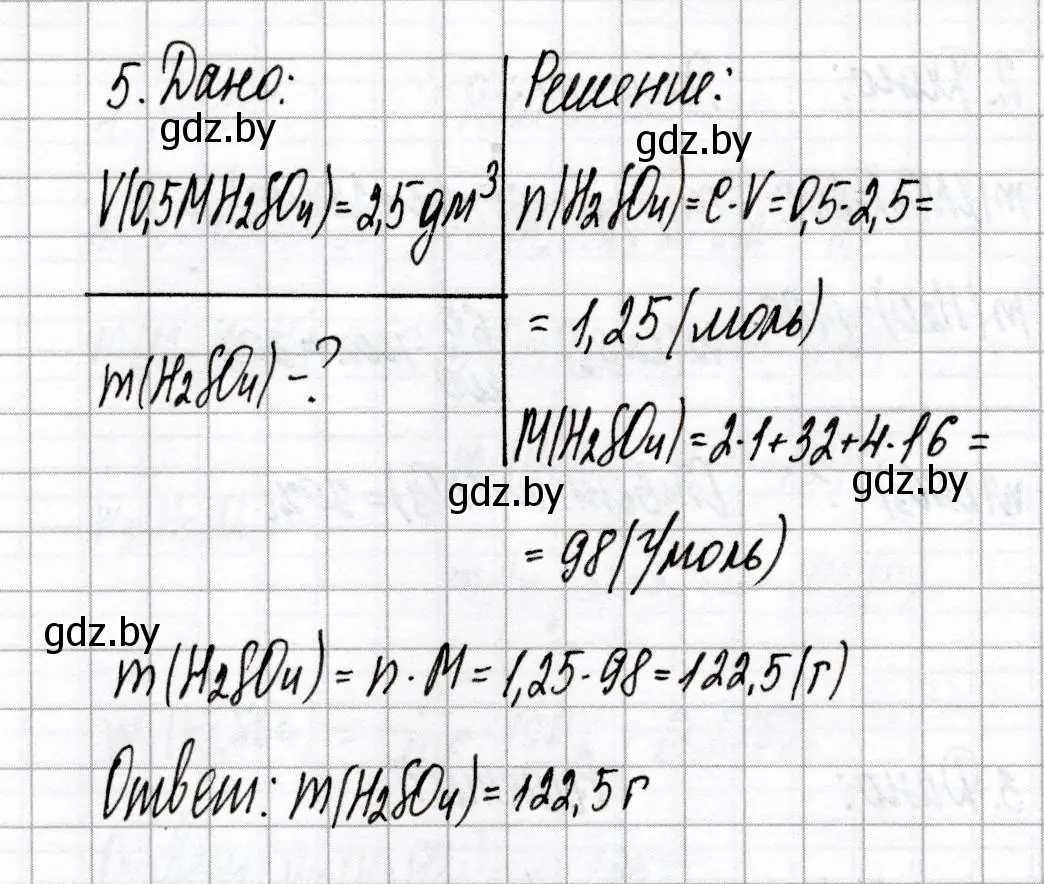 5. Дано:
gdz.by
V(0,5М H₂SO₄) = 2,5 дм³
m(H₂SO₄) - ?
Решение:
gdz.by
n(H₂SO₄) = C · V = 0,5 · 2,5 =
= 1,25 (моль)
M(H₂SO₄) = 2 · 1 + 32 + 4 · 16 =
gdz.by gdz.by
= 98 (г/моль)
gdz.by
m(H₂SO₄) = n · M = 1,25 · 98 = 122,5 (г)
Ответ: m(H₂SO₄) = 122,5 г